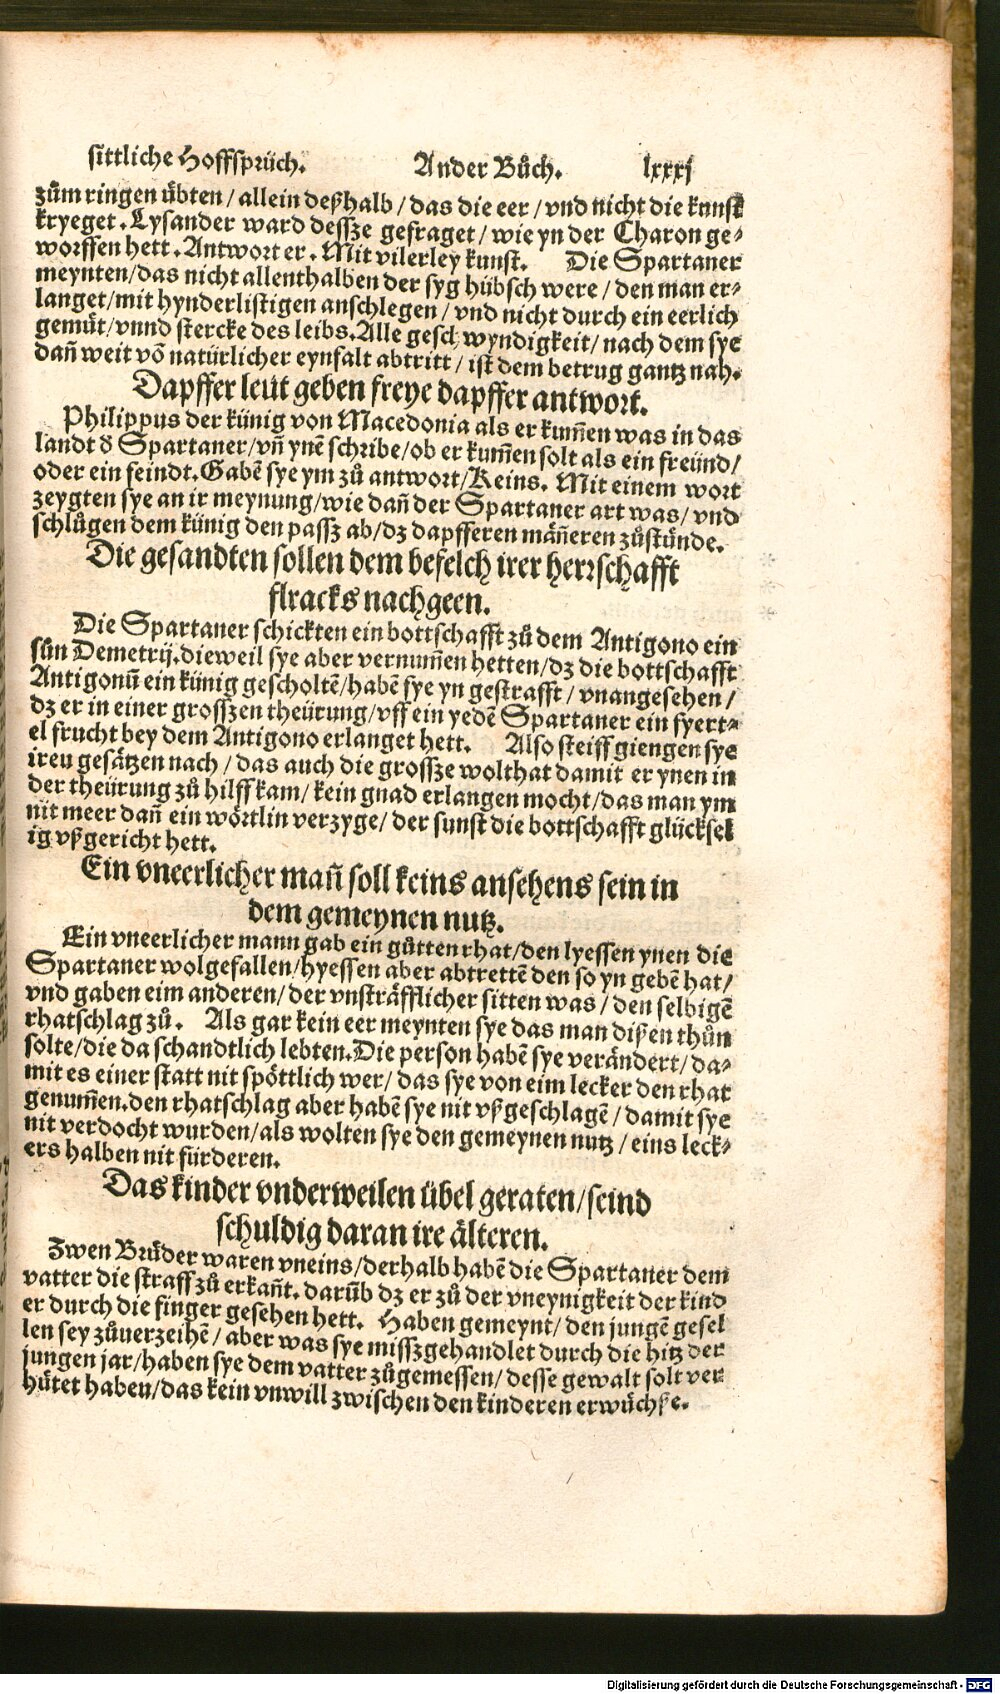 sittliche Hoffsprüch. Ander Bůch. lxxxj
zům ringen übten / allein deßhalb / das die eer / vnd nicht die kunst
kryeget. Lysander ward dessze gefraget / wie yn der Charon ge⸗
worffen hett. Antwort er. Mit vilerley kunst. Die Spartaner
meynten/das nicht allenthalben der syg hübsch were / den man er⸗
langet/mit hynderlistigen anschlegen / vnd nicht durch ein eerlich
gemüt/vnnd stercke des leibs. Alle geschwyndigkeit/ nach dem sye
dañ weit võ natürlicher eynfalt abtritt / ist dem betrug gantz nah.
Dapffer leüt geben freye dapffer antwort.
Philippus der künig von Macedonia als er kum̃en was in das
landt ð Spartaner/vñ ynẽ schribe/ob er kum̃en solt als ein freünd/
oder ein feindt. Gabẽ sye ym zů antwort/Keins. Mit einem wort
zeygten sye an ir meynung/wie dañ der Spartaner art was/ vnd
schlůgen dem künig den passz ab/dz dapfferen mäñeren zůstünde.
Die gesandten sollen dem befelch irer herrschafft
flracks nachgeen.
Die Spartaner schickten ein bottschafft zů dem Antigono ein
sůn Demetrij. dieweil sye aber vernum̃en hetten/dz die bottschafft
Antigonũ ein künig gescholtẽ/habẽ sye yn gestrafft / vnangesehen /
dz er in einer grosszen theürung/vff ein yedẽ Spartaner ein fyert⸗
el frucht bey dem Antigono erlanget hett. Also steiff giengen sye
iren gesätzen nach / das auch die grossze wolthat damit er ynen in
der theürung zů hilff kam/ kein gnad erlangen mocht/das man ym
nit meer dañ ein wörtlin verzyge/ der sunst die bottschafft glücksel
ig vßgericht hett.
Ein vneerlicher mañ soll keins ansehens sein in
dem gemeynen nutz.
Ein vneerlicher mann gab ein gůtten rhat/den lyessen ynen die
Spartaner wolgefallen/hyessen aber abtrettẽ den so yn gebẽ hat/
vnd gaben eim anderen/ der vnsträfflicher sitten was / den selbigẽ
rhatschlag zů. Als gar kein eer meynten sye das man dißen thůn
solte/die da schandtlich lebten. Die person habẽ sye verändert/ da⸗
mit es einer statt nit spöttlich wer/ das sye von eim lecker den rhat
genum̃en. den rhatschlag aber habẽ sye nit vßgeschlagẽ / damit sye
nit verdocht wurden/als wolten sye den gemeynen nutz / eins leck⸗
ers halben nit fürderen.
Das kinder vnderweilen übel geraten/seind
schuldig daran ire älteren.
Zwen Brüder waren vneins/derhalb habẽ die Spartaner dem
vatter die straff zů erkañt. darũb dz er zů der vneynigkeit der kind
er durch die finger gesehen hett. Haben gemeynt/ den jungẽ gesel
len sey zůuerzeihẽ / aber was sye misszgehandlet durch die hitz der
jungen jar/haben sye dem vatter zůgemessen/ desse gewalt solt ver
hütet haben/das kein vnwill zwischen den kinderen erwüchße.
Digitalisierung gefördert durch die Deutsche Forschungsgemeinschaft - DFG